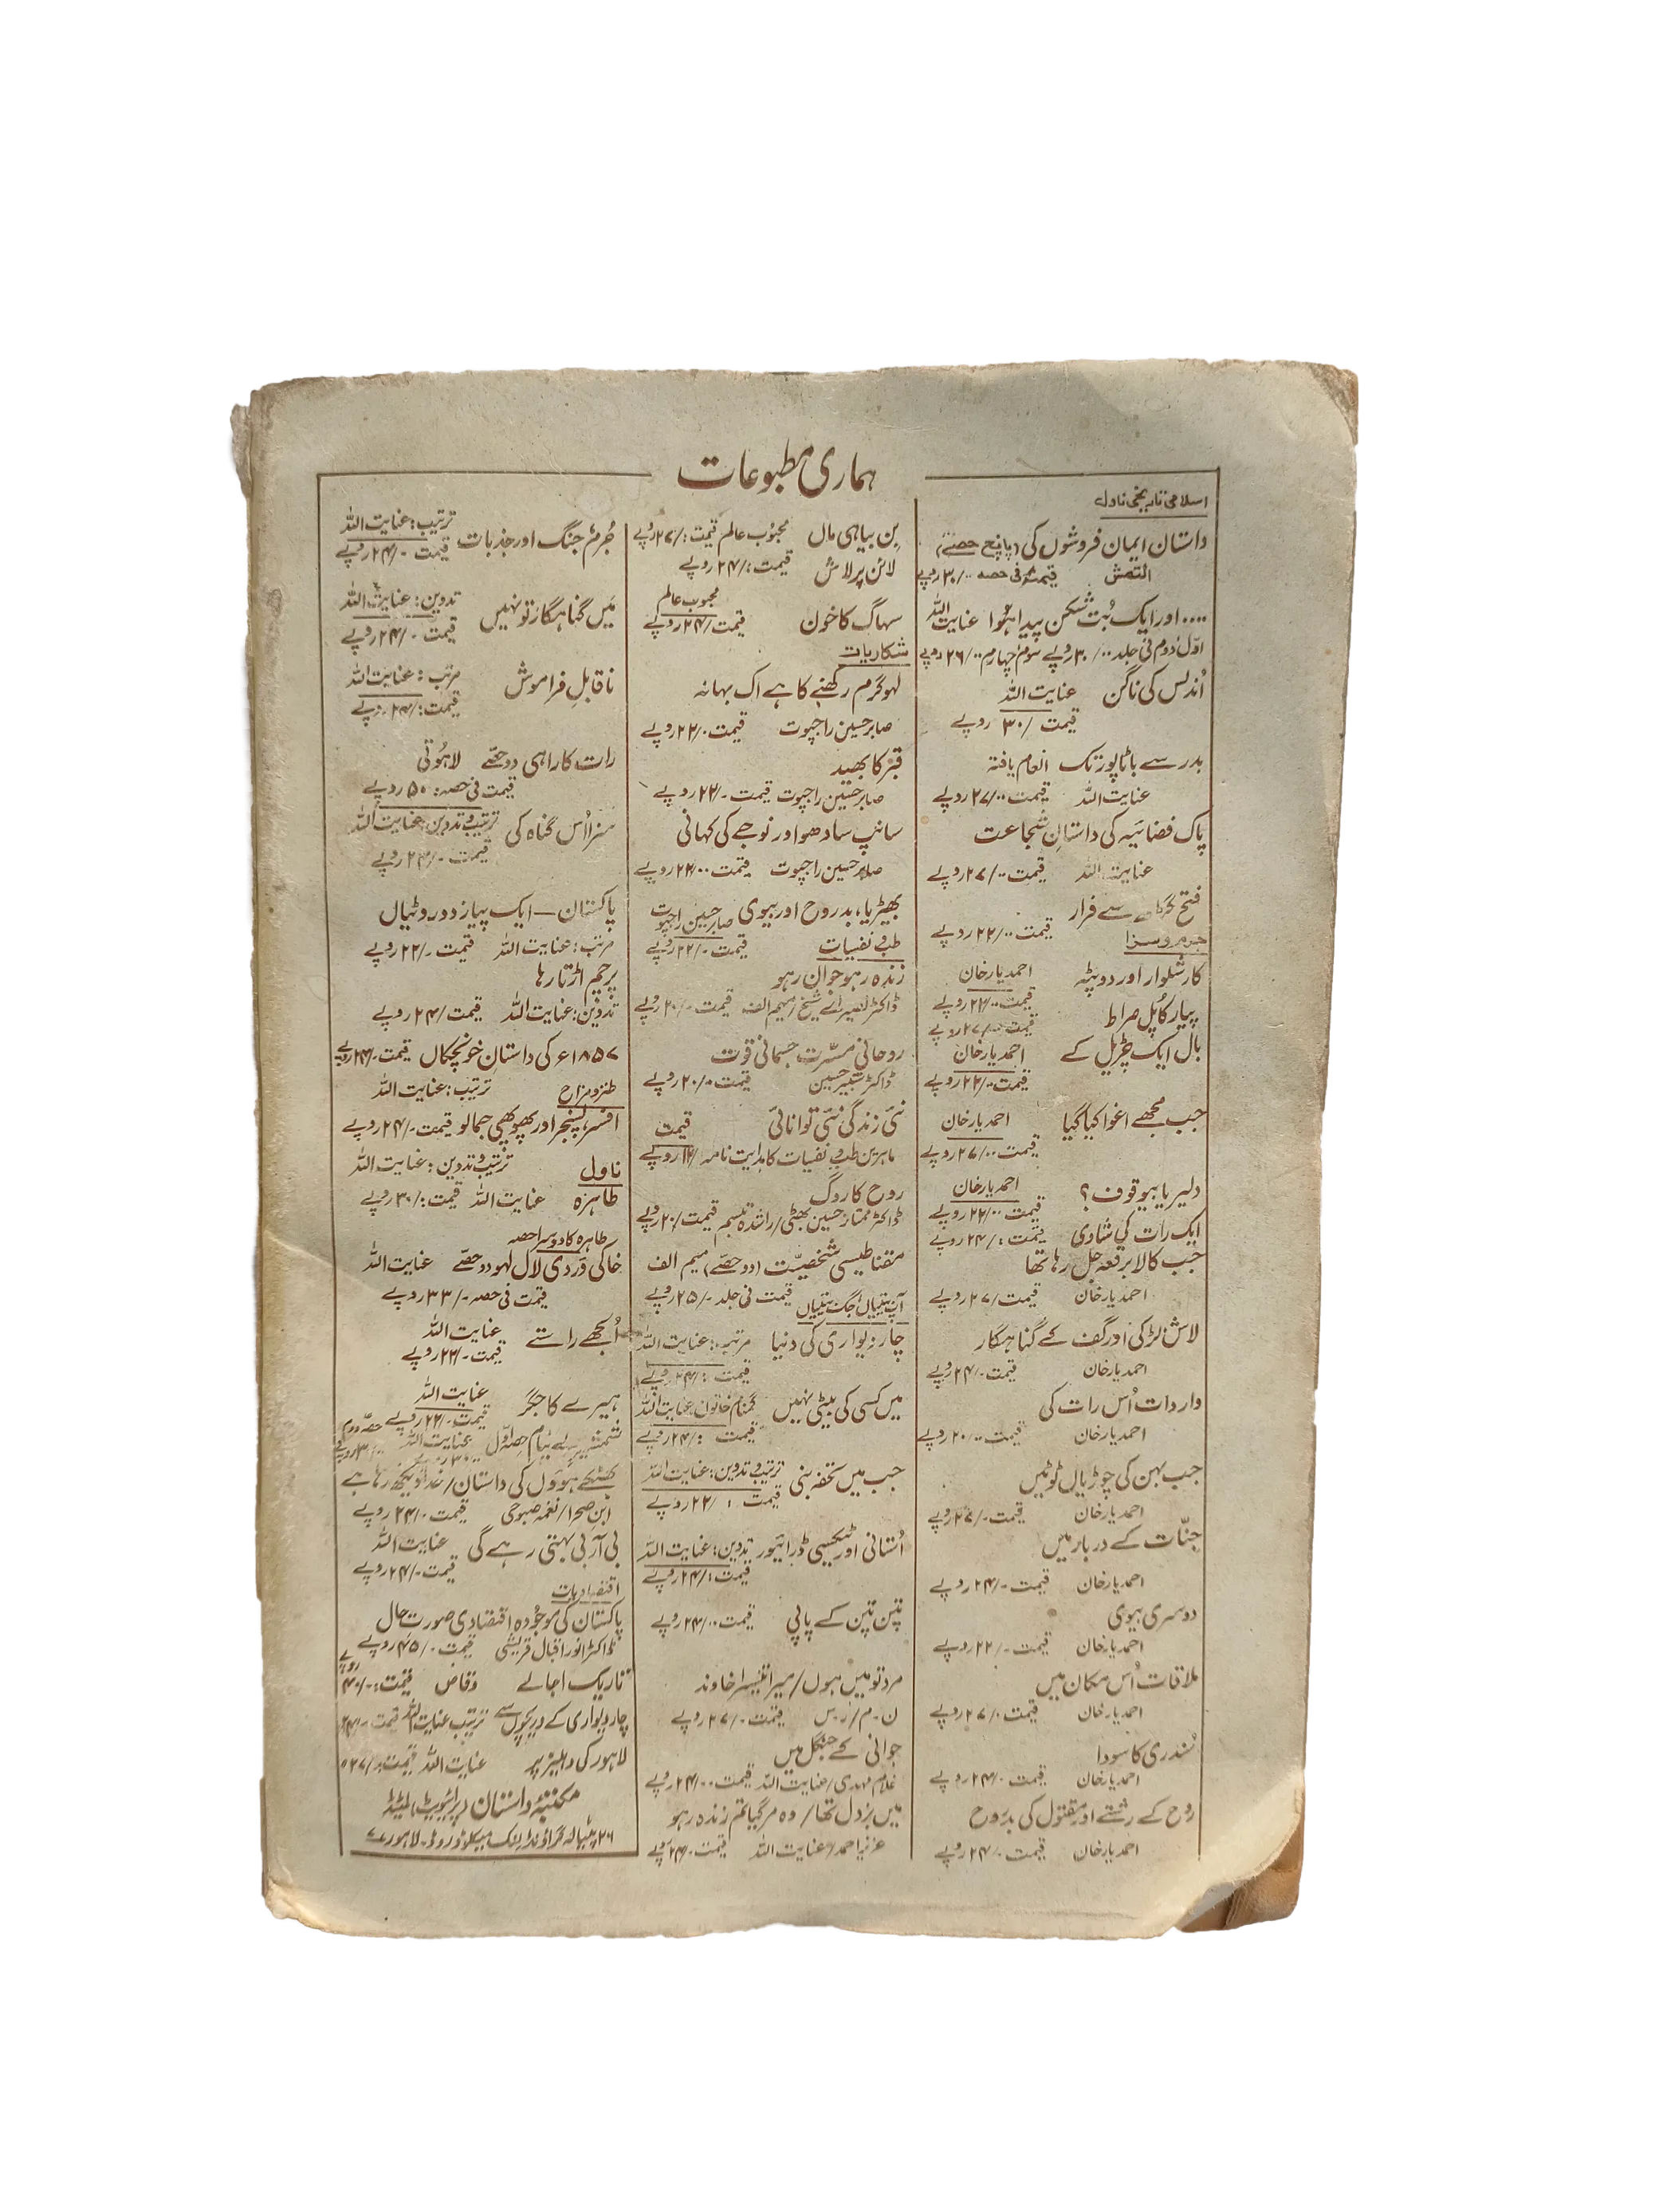 ہماری مطبوعات
اسلامی تاریخی ناول
داستان ایمان فروشوں کی (پانچ حصّے)
التمش قیمت فی حصہ ۳۰/۰۰ روپے
.... اور ایک بُت شکن پیدا ہُوا عنایت اللہ
اوّل دوم فی جلد ۳۰/۰۰ روپے سوم چہارم ۲۶/۰۰ روپے
اُندلس کی ناگن عنایت اللہ
قیمت /۳۰ روپے
بدر سے باٹاپور تک انعام یافتہ
عنایت اللہ قیمت ۲۷/۰۰ روپے
پاک فضائیہ کی داستانِ شجاعت
عنایت اللہ قیمت ۲۷/۰ روپے
فتح گڑھ سے فرار
قیمت ۲۲/۰۰ روپے
جرم و سزا
کار شلوار اور دوپٹہ احمد یار خان
قیمت ۲۲/۰۰ روپے
پیار کا پُل صراط
قیمت ۲۷/۰۰ روپے
بال ایک چڑیل کے احمد یار خان
قیمت ۲۲/۰ روپے
جب مجھے اغوا کیا گیا احمد یار خان
قیمت ۲۷/۰۰ روپے
دلیر یا بیوقوف؟ احمد یار خان
قیمت ۲۲/۰۰ روپے
ایک رات کی شادی قیمت :/۲۴ روپے
جب کالا برقعہ جل رہا تھا
احمد یار خان قیمت /۲۷ روپے
لاش لڑکی اور گف کے گناہگار
احمد یار خان قیمت -/۲۴ روپے
واردات اُس رات کی
احمد یار خان قیمت ۲۰/۰۰ روپے
جب بہن کی چوڑیاں ٹوٹیں
احمد یار خان قیمت -/۲۷ روپے
جنّات کے دربار میں
احمد یار خان قیمت -/۲۴ روپے
دوسری بیوی
احمد یار خان قیمت -/۲۲ روپے
ملاقات اُس مکان میں
احمد یار خان قیمت ۲۷/۰ روپے
سُندری کا سودا
احمد یار خان قیمت ۲۴/۰ روپے
روح کے رشتے اور مقتول کی بدروح
احمد یار خان قیمت ۲۴/۰ روپے
بِن بیاہی ماں محبُوب عالم قیمت :/۲۷ روپے
لائن پر لاش قیمت :/۲۴ روپے
محبوب عالم
سہاگ کا خون قیمت /۲۴ روپے
شکاریات
لہو گرم رکھنے کا ہے اک بہانہ
صابر حسین راجپوت قیمت ۲۲/۰ روپے
قبر کا بھید
صابر حسین راجپوت قیمت -/۲۲ روپے
سانپ سادھو اور نوجے کی کہانی
صابر حسین راجپوت قیمت ۲۲/۰۰ روپے
بھیڑیا، بدروح اور بیوی صابر حسین راجپوت
قیمت -/۲۲ روپے
طب و نفسیات
زندہ رہو جوان رہو
ڈاکٹر نصیر اے شیخ/میم الف قیمت -/۲۰ روپے
روحانی مسرّت جسمانی قوت
ڈاکٹر شبیر حسین قیمت ۲۰/۰ روپے
نئی زندگی نئی توانائی قیمت
ماہرین طب و نفسیات کا ہدایت نامہ /۱۲ روپے
روح کا روگ
ڈاکٹر ممتاز حسین بھٹی/راشدہ تبسم قیمت /۲۰ روپے
مقناطیسی شخصیّت (دو حصّے) میم الف
قیمت فی جلد -/۲۵ روپے
آپ بیتیاں جگ بیتیاں
چار دیواری کی دنیا مرتبہ: عنایت اللہ
قیمت :/۲۴ روپے
میں کسی کی بیٹی نہیں گمنام خاتون، عنایت اللہ
قیمت :/۲۴ روپے
جب میں تحفہ بنی ترتیب و تدوین: عنایت اللہ
قیمت :/۲۲ روپے
اُستانی اور ٹیکسی ڈرائیور تدوین: عنایت اللہ
قیمت :/۲۴ روپے
تپن تپن کے پاپی قیمت ۲۴/۰۰ روپے
مرد تو میں ہوں/میرا تیسرا خاوند
ن۔م/ر۔س قیمت -/۲۷ روپے
جوانی کے جنگل میں
غلام مہدی/عنایت اللہ قیمت ۲۴/۰۰ روپے
میں بزدل تھا/وہ مر گیا تم زندہ رہو
عزیز احمد/عنایت اللہ قیمت -/۲۴ روپے
جُرم جنگ اور جذبات ترتیب: عنایت اللہ
قیمت -/۲۴ روپے
میں گناہگار تو نہیں تدوین: عنایت اللہ
قیمت -/۲۴ روپے
ناقابلِ فراموش مرتب: عنایت اللہ
قیمت :/۲۴ روپے
رات کا راہی دو حصّے لاہُوتی
قیمت فی حصہ: ۵۰ روپے
سزا اُس گناہ کی ترتیب و تدوین: عنایت اللہ
قیمت -/۲۴ روپے
پاکستان — ایک پیاز دو روٹیاں
مرتب: عنایت اللہ قیمت -/۲۲ روپے
پرچم اڑتا رہا
تدوین: عنایت اللہ قیمت /۲۴ روپے
۱۸۵۷ء کی داستان خونچکاں قیمت -/۲۴ روپے
ترتیب: عنایت اللہ
طنز و مزاح
افسر، پسنجر اور پھوپھی جمالو قیمت -/۲۴ روپے
ترتیب و تدوین: عنایت اللہ
ناول
طاہرہ عنایت اللہ قیمت :/۳۰ روپے
طاہرہ کا دوسرا حصہ
خاکی وردی لال لہو دو حصّے عنایت اللہ
قیمت فی حصہ -/۳۳ روپے
اُلجھے راستے عنایت اللہ
قیمت -/۲۲ روپے
ہیرے کا جگر عنایت اللہ
قیمت -/۲۲ روپے
شمشیر بے نیام حصہ اوّل عنایت اللہ حصّہ دوم
بھٹکے ہوؤں کی داستان/خدا دیکھ رہا ہے
ابن صحرا/نغمہ صبوحی قیمت ۲۴/۰ روپے
بی آر بی بہتی رہے گی عنایت اللہ
قیمت -/۲۴ روپے
اقتصادیات
پاکستان کی موجُودہ اقتصادی صورت حال
ڈاکٹر انور اقبال قریشی قیمت -/۴۵ روپے
تاریک اجالے وقاص قیمت: -/۴۰ روپے
چار دیواری کے دریچوں سے ترتیب عنایت اللہ قیمت
لاہور کی دہلیز پر عنایت اللہ قیمت
مکتبۂ داستان (پرائیویٹ) لمیٹڈ
۲۶ پٹیالہ گراؤنڈ لنک میکلوڈ روڈ ۔ لاہور ۷